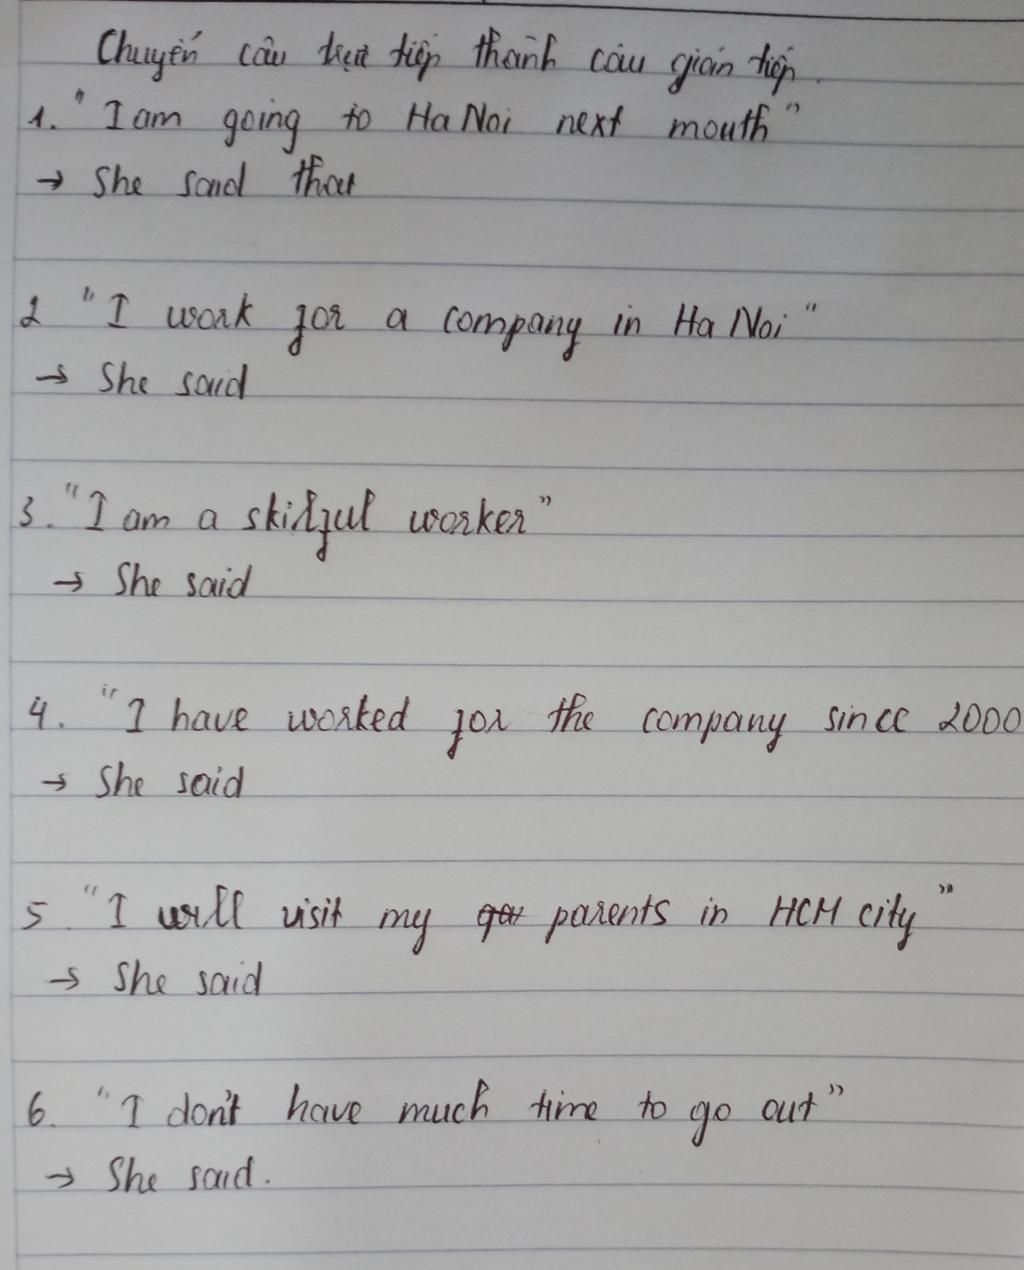 Chuyển câu trực tiếp thành câu gián tiếp.
1. "I am going to Ha Noi next mouth"
→ She said that
2 "I work for a company in Ha Noi"
→ She said
3. "I am a skilful worker"
→ She said
4. "I have worked for the company since 2000
→ She said
5 "I will visit my parents in HCM city"
→ She said
6. "I don't have much time to go out"
→ She said.